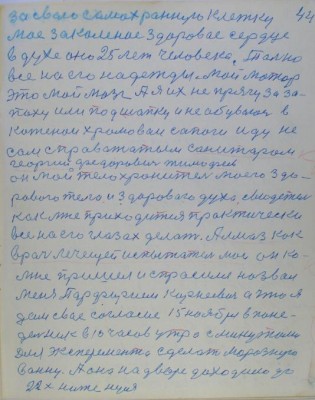 44
за свою самахранную клетку
Мое закаленае здаровае сердце
в духе оно 25 лет человека. Толко
все на его надежды. Мой мотор
это мой мозг. А я их не прячу за за-
паху или под шапку и не абуваюсь в
кожаной хромовай сапоги иду не
сам с праважатым санитаром
георгий федорович
он мой телохранител моего здо-
рового тело и здороваго духа, свидетел
как мне приходится практически
все на его глазах делат. Алмаз как
врач лечещет испытател мое он ко
мне пришел и спрасил назвал
меня Парфирием Корнеевич а то я
дал свае согласие 15 ноября в поне-
делник в 10 часов утро с минутами
для эксперемента сделат морозную
ванну. А оно на дваре даходило до
22х ниже нуля